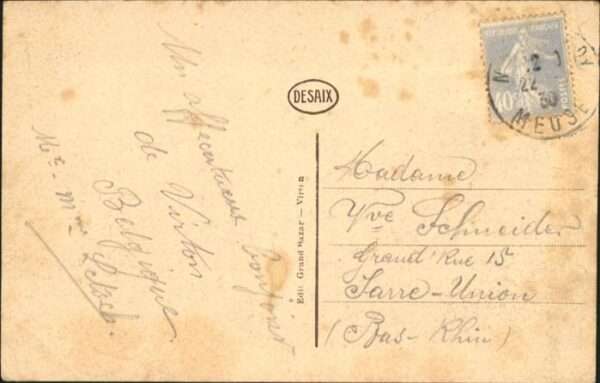 Un affectueux bonjour
de Virton
Belgique
Mr - Mme
DESAIX
Edit. Grand Bazar — Virton
RÉPUBLIQUE FRANÇAISE
POSTES
40
22
30
MEUSE
Madame
Vve Schneider
Grand'Rue 15
Sarre-Union
(Bas-Rhin)